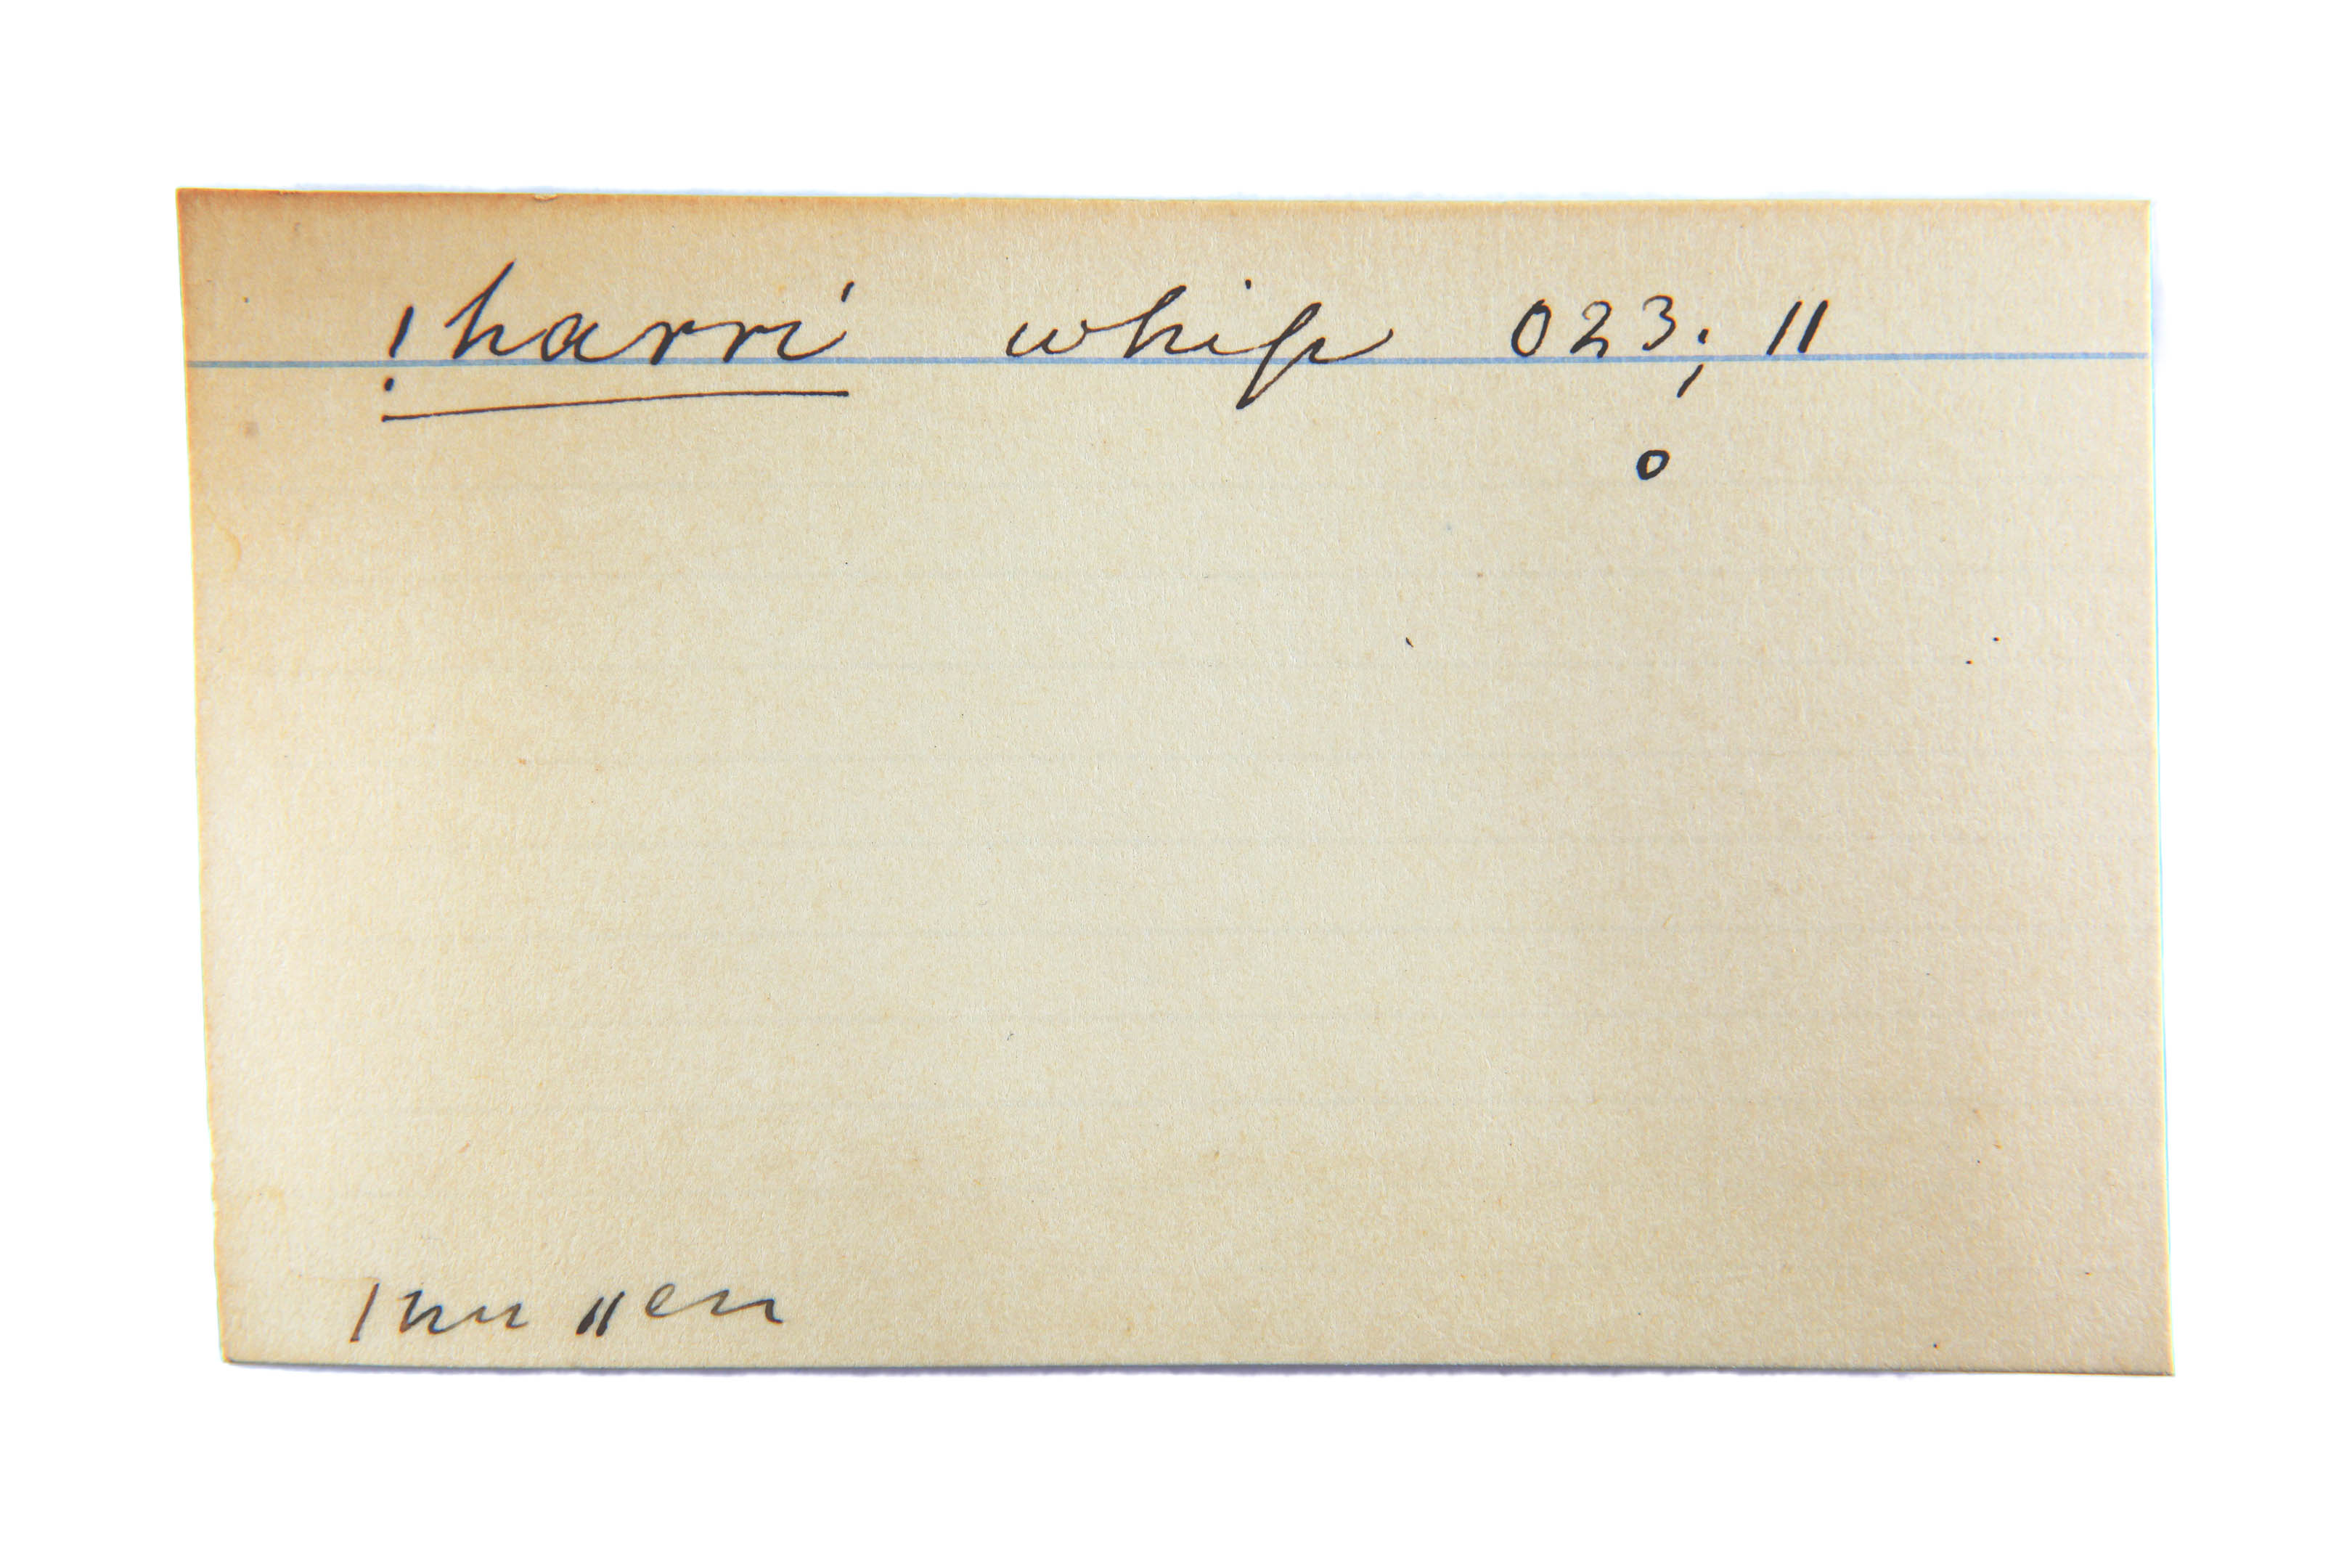 !harri whip 023; 11
o
|nu ||en